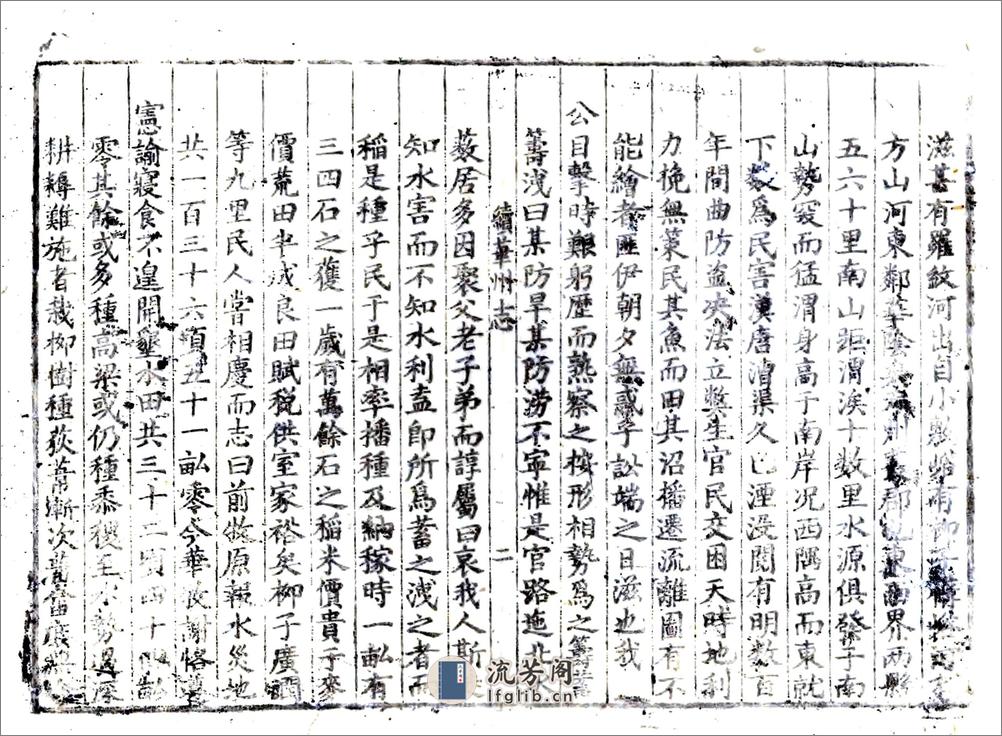 滋甚有羅紋河出自小敷蛒
方山河東鄰華陰界兩縣
五六十里南山距渭涘十数里水源俱發于南
山勢窄而猛渭身高于南岸况西隅高而東就
下数為民害漢唐漕渠久已湮没間有明数百
年間曲防盗决法立獘生官民交困天時地利
力挽無策民其魚而田其沼播遷流離圖有不
能繪者匪伊朝夕無惑乎訟端之日滋也我
公目擊時艱躬歷而熟察之按形相勢為之籌蓄
籌洩曰某防旱某防澇不寧惟是官路迤北
薮居多因聚父老子弟而諄屬曰哀我人斯
知水害而不知水利盍即所為蓄之洩之者而
稻是種乎民于是相率播種及納稼時一畝有
三四石之獲一歲有萬餘石之稻米價貴于麥
價荒田半成良田賦税供室家裕矣柳子廣濶
等九里民人嘗相慶而志曰前牧原報水災地
共一百三十六頃五十一畝零今華牧謝恪
憲諭寢食不遑開墾水田共三十二頃四十
零其餘或多種高梁或仍種黍稷至水勢過深
耕耨難施者栽柳樹種荻葦漸次舊
續華州志
二
流芳阁
lfglib.cn